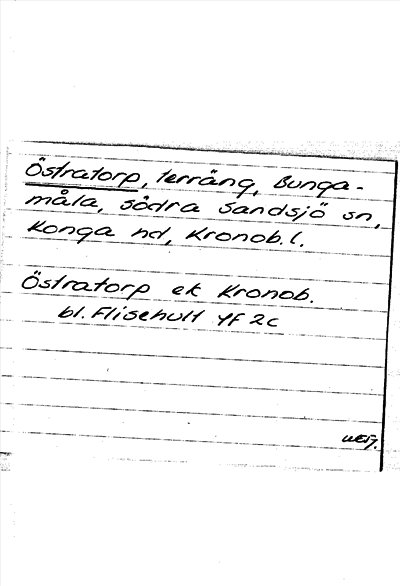 Östratorp, terräng, Bunga-
måla, Södra Sandsjö sn,
Konga hd, Kronob. l.
Östratorp ek Kronob.
bl. Flisehult 4F 2c